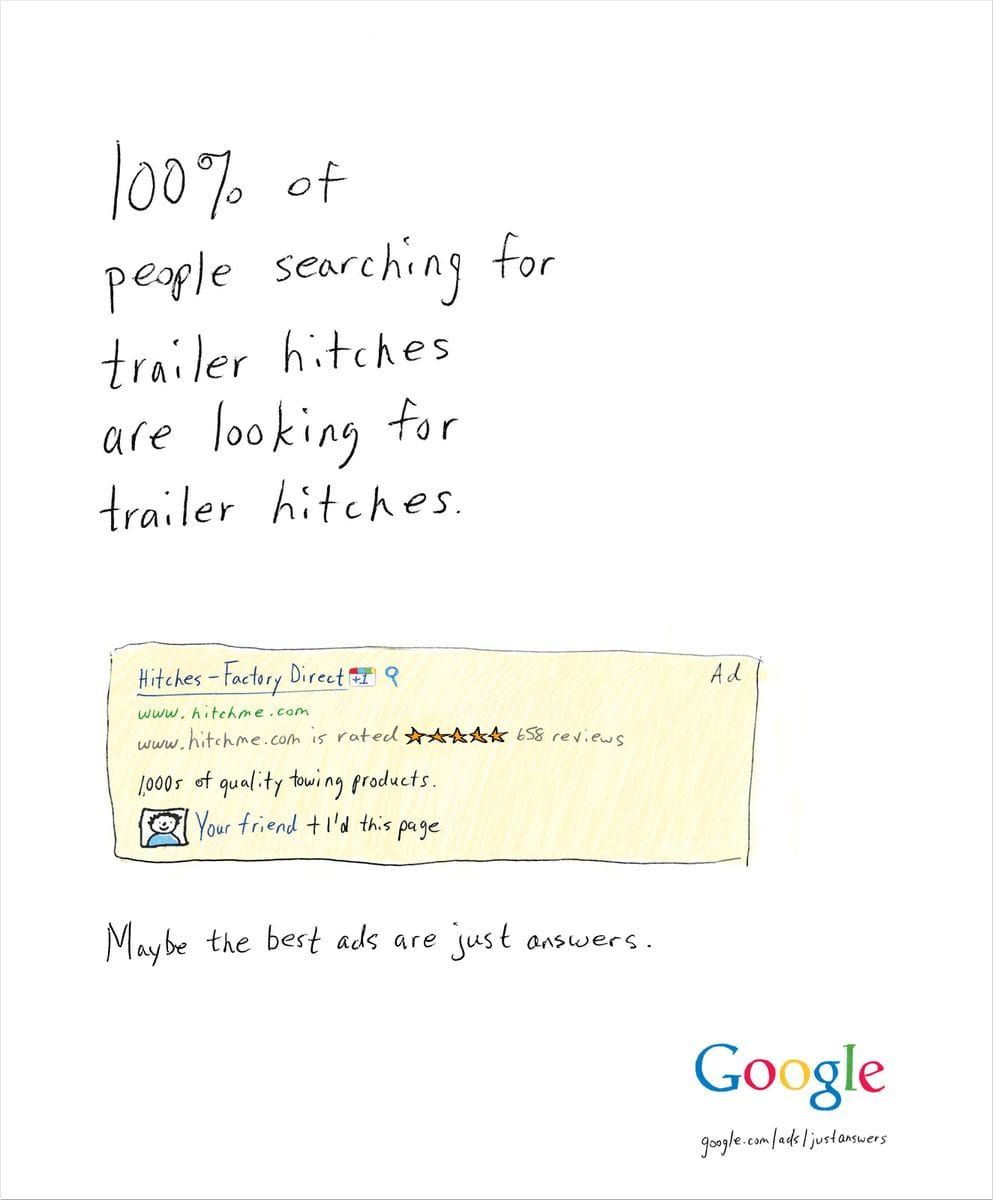 100% of
people searching for
trailer hitches
are looking for
trailer hitches.
Hitches - Factory Direct +1
Ad
www.hitchme.com
www.hitchme.com is rated ★★★★★ 658 reviews
1,000s of quality towing products.
Your friend +1'd this page
Maybe the best ads are just answers.
Google
google.com/ads/justanswers